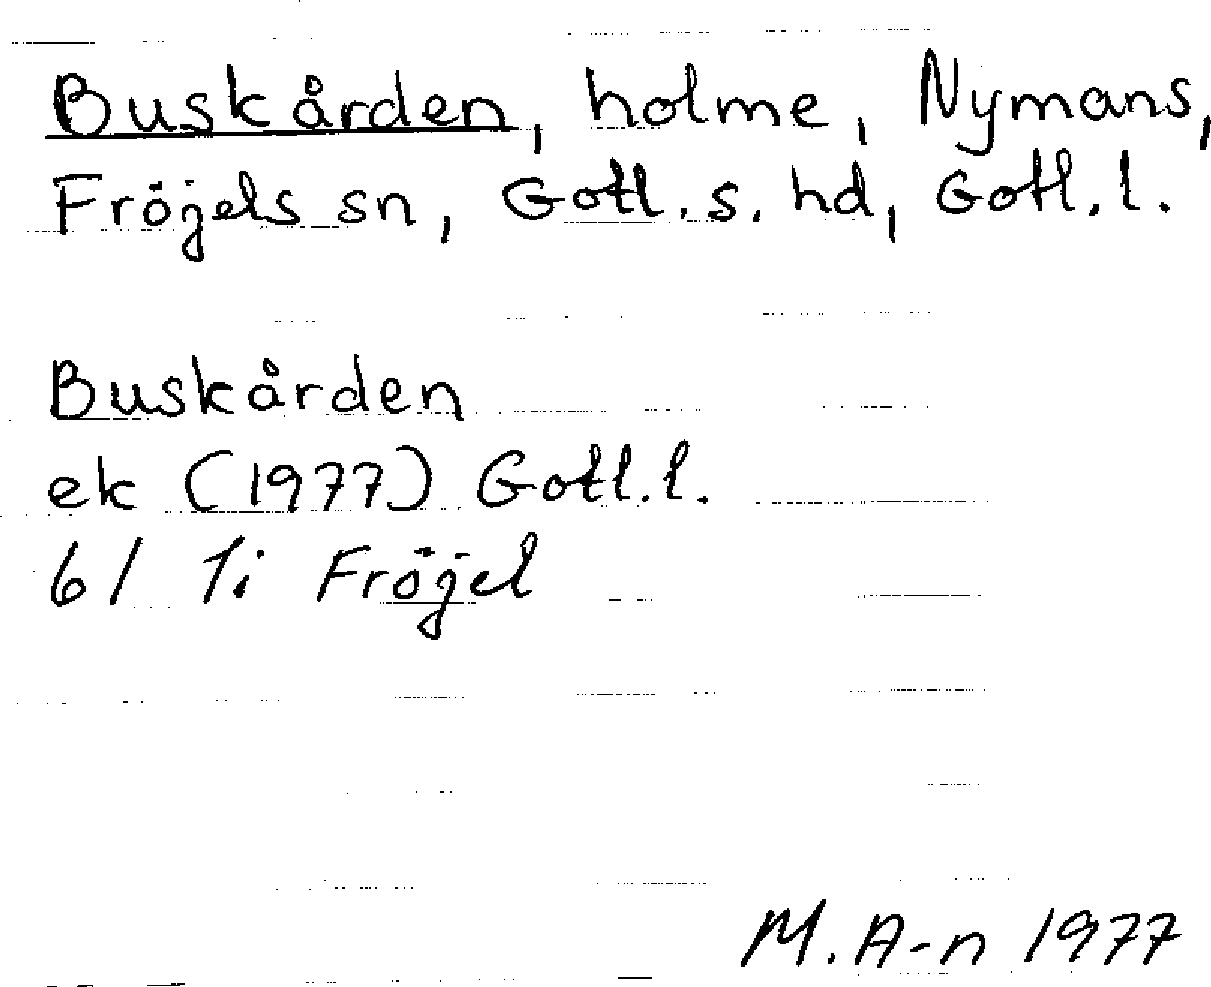 Buskården, holme, Nymans,
Fröjels sn, Gotl. s. hd, Gotl. l.
Buskården
ek (1977) Gotl. l.
6I 1i Fröjel
M. A-n 1977